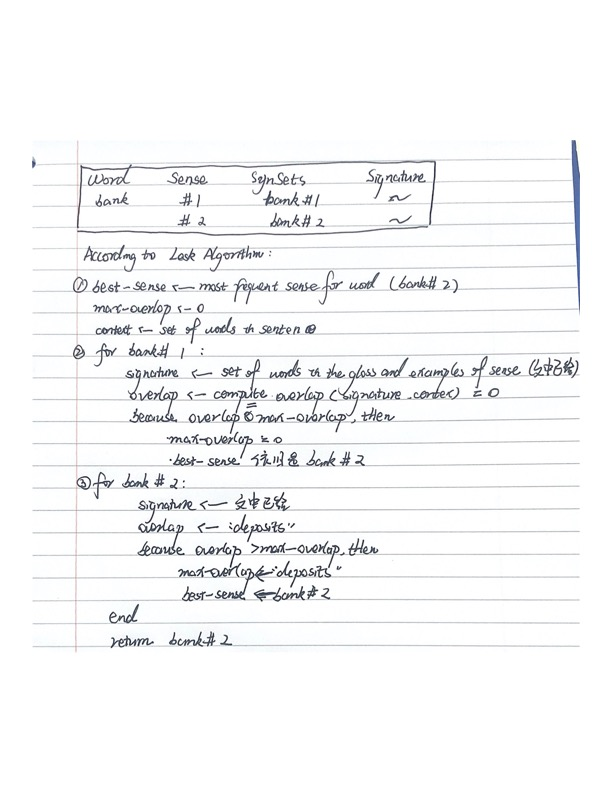 Word Sense SynSets Signature
bank #1 bank#1 ~
#2 bank#2 ~
According to Lesk Algorithm:
① best-sense ← most frequent sense for word (bank#2)
max-overlop ← 0
context ← set of words in senten
② for bank# 1 :
signature ← set of words in the gloss and examples of sense (文中已给)
overlap ← compute overlap (signature, contex) = 0
because overlap = max-overlap, then
max-overlop = 0
best-sense 依旧是 bank #2
③ for bank #2:
signature ← 文中已给
overlap ← "deposits"
because overlap > max-overlap, then
max-overlap ← "deposits"
best-sense ← bank#2
end
return bank#2